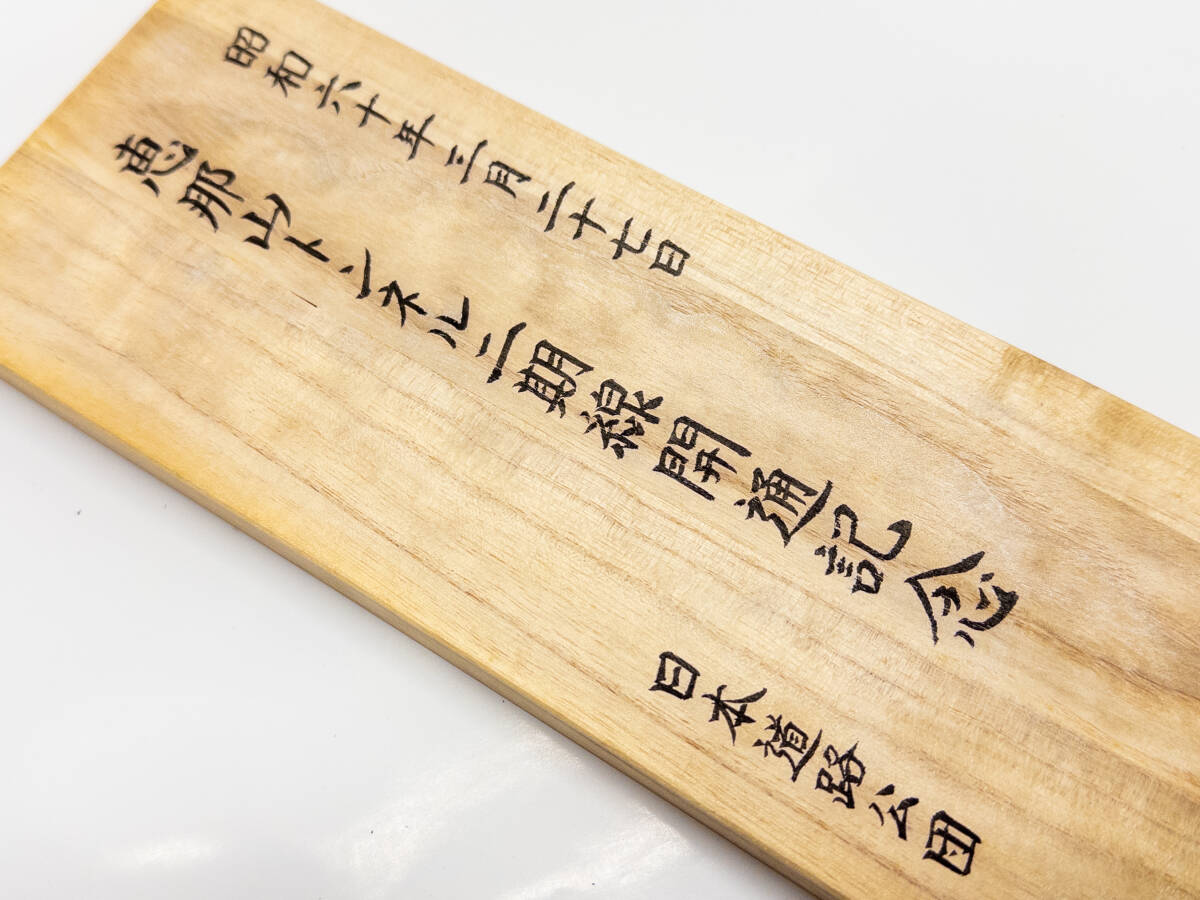 昭和六十年三月二十七日
恵那山トンネル二期線開通記念
日本道路公団